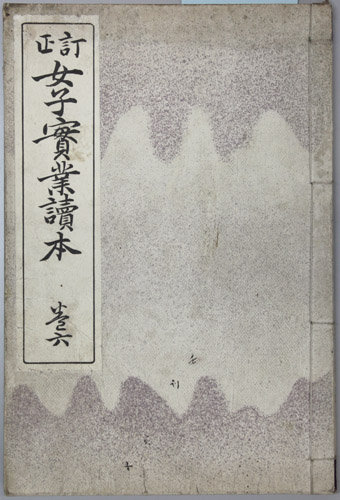 訂正
女子實業讀本
巻六